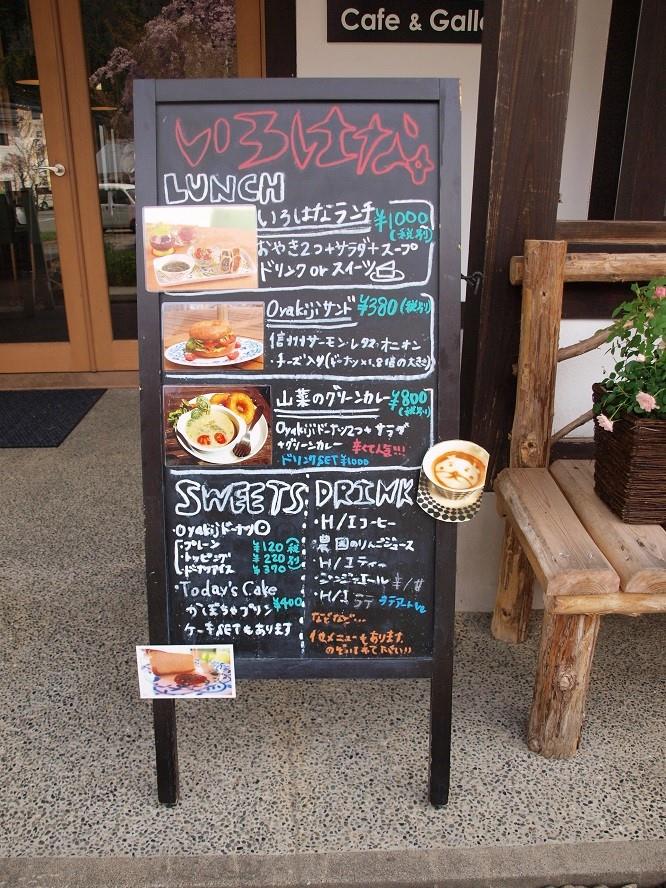 Cafe & Galle
いろはな
LUNCH
いろはなランチ ¥1000
(税別)
おやき2つ+サラダ+スープ
ドリンク or スイーツ
Oyakijiサンド ¥380(税別)
信州サーモン・レタス・オニオン
・チーズ入り(ドーナツ×1.8倍の大きさ)
山菜のグリーンカレー ¥800
(税別)
Oyakijiドーナツ2つ+サラダ
+グリーンカレー 辛くて人気!!!
ドリンクSET ¥1000
SWEETS
・Oyakijiドーナツ
・プレーン ¥120 (税
・トッピング ¥220 別)
・ドーナツアイス ¥370
・Today's Cake
かぼちゃプリン ¥400
ケーキSETもあります
DRINK
・H/Iコーヒー
農園のりんごジュース
・H/Iティー
・ジンジャエール 辛/甘
・H/Iラテ ラテアート
などなど・・・
他メニューもあります。
のぞいてみてください!!